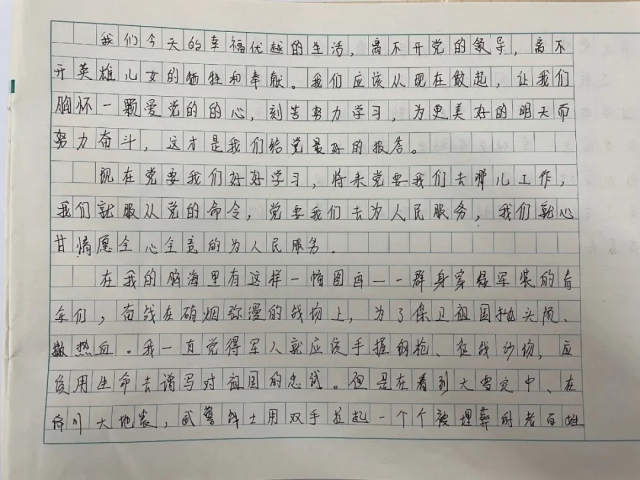 我们今天的幸福优越的生活，离不开党的教导，离不
开英雄儿女的牺牲和奉献。我们应该从现在做起，让我们
胸怀一颗爱党的的心，刻苦努力学习，为更美好的明天而
努力奋斗，这才是我们给党最好的报告。
现在党要我们好好学习，将来党要我们去哪儿工作，
我们就服从党的命令，党要我们去为人民服务，我们就心
甘情愿全心全意的为人民服务．
在我的脑海里有这样一幅图画——群身穿绿军装的青
年们，奋战在硝烟弥漫的战场上，为了保卫祖国抛头颅、
撒热血。我一直觉得军人就应该手握钢枪、征战沙场，应
该用生命去谱写对祖国的忠诚。但是在看到大雪灾中、在
汶川大地震，武警战士用双手拉起一个个被埋葬的老百姓